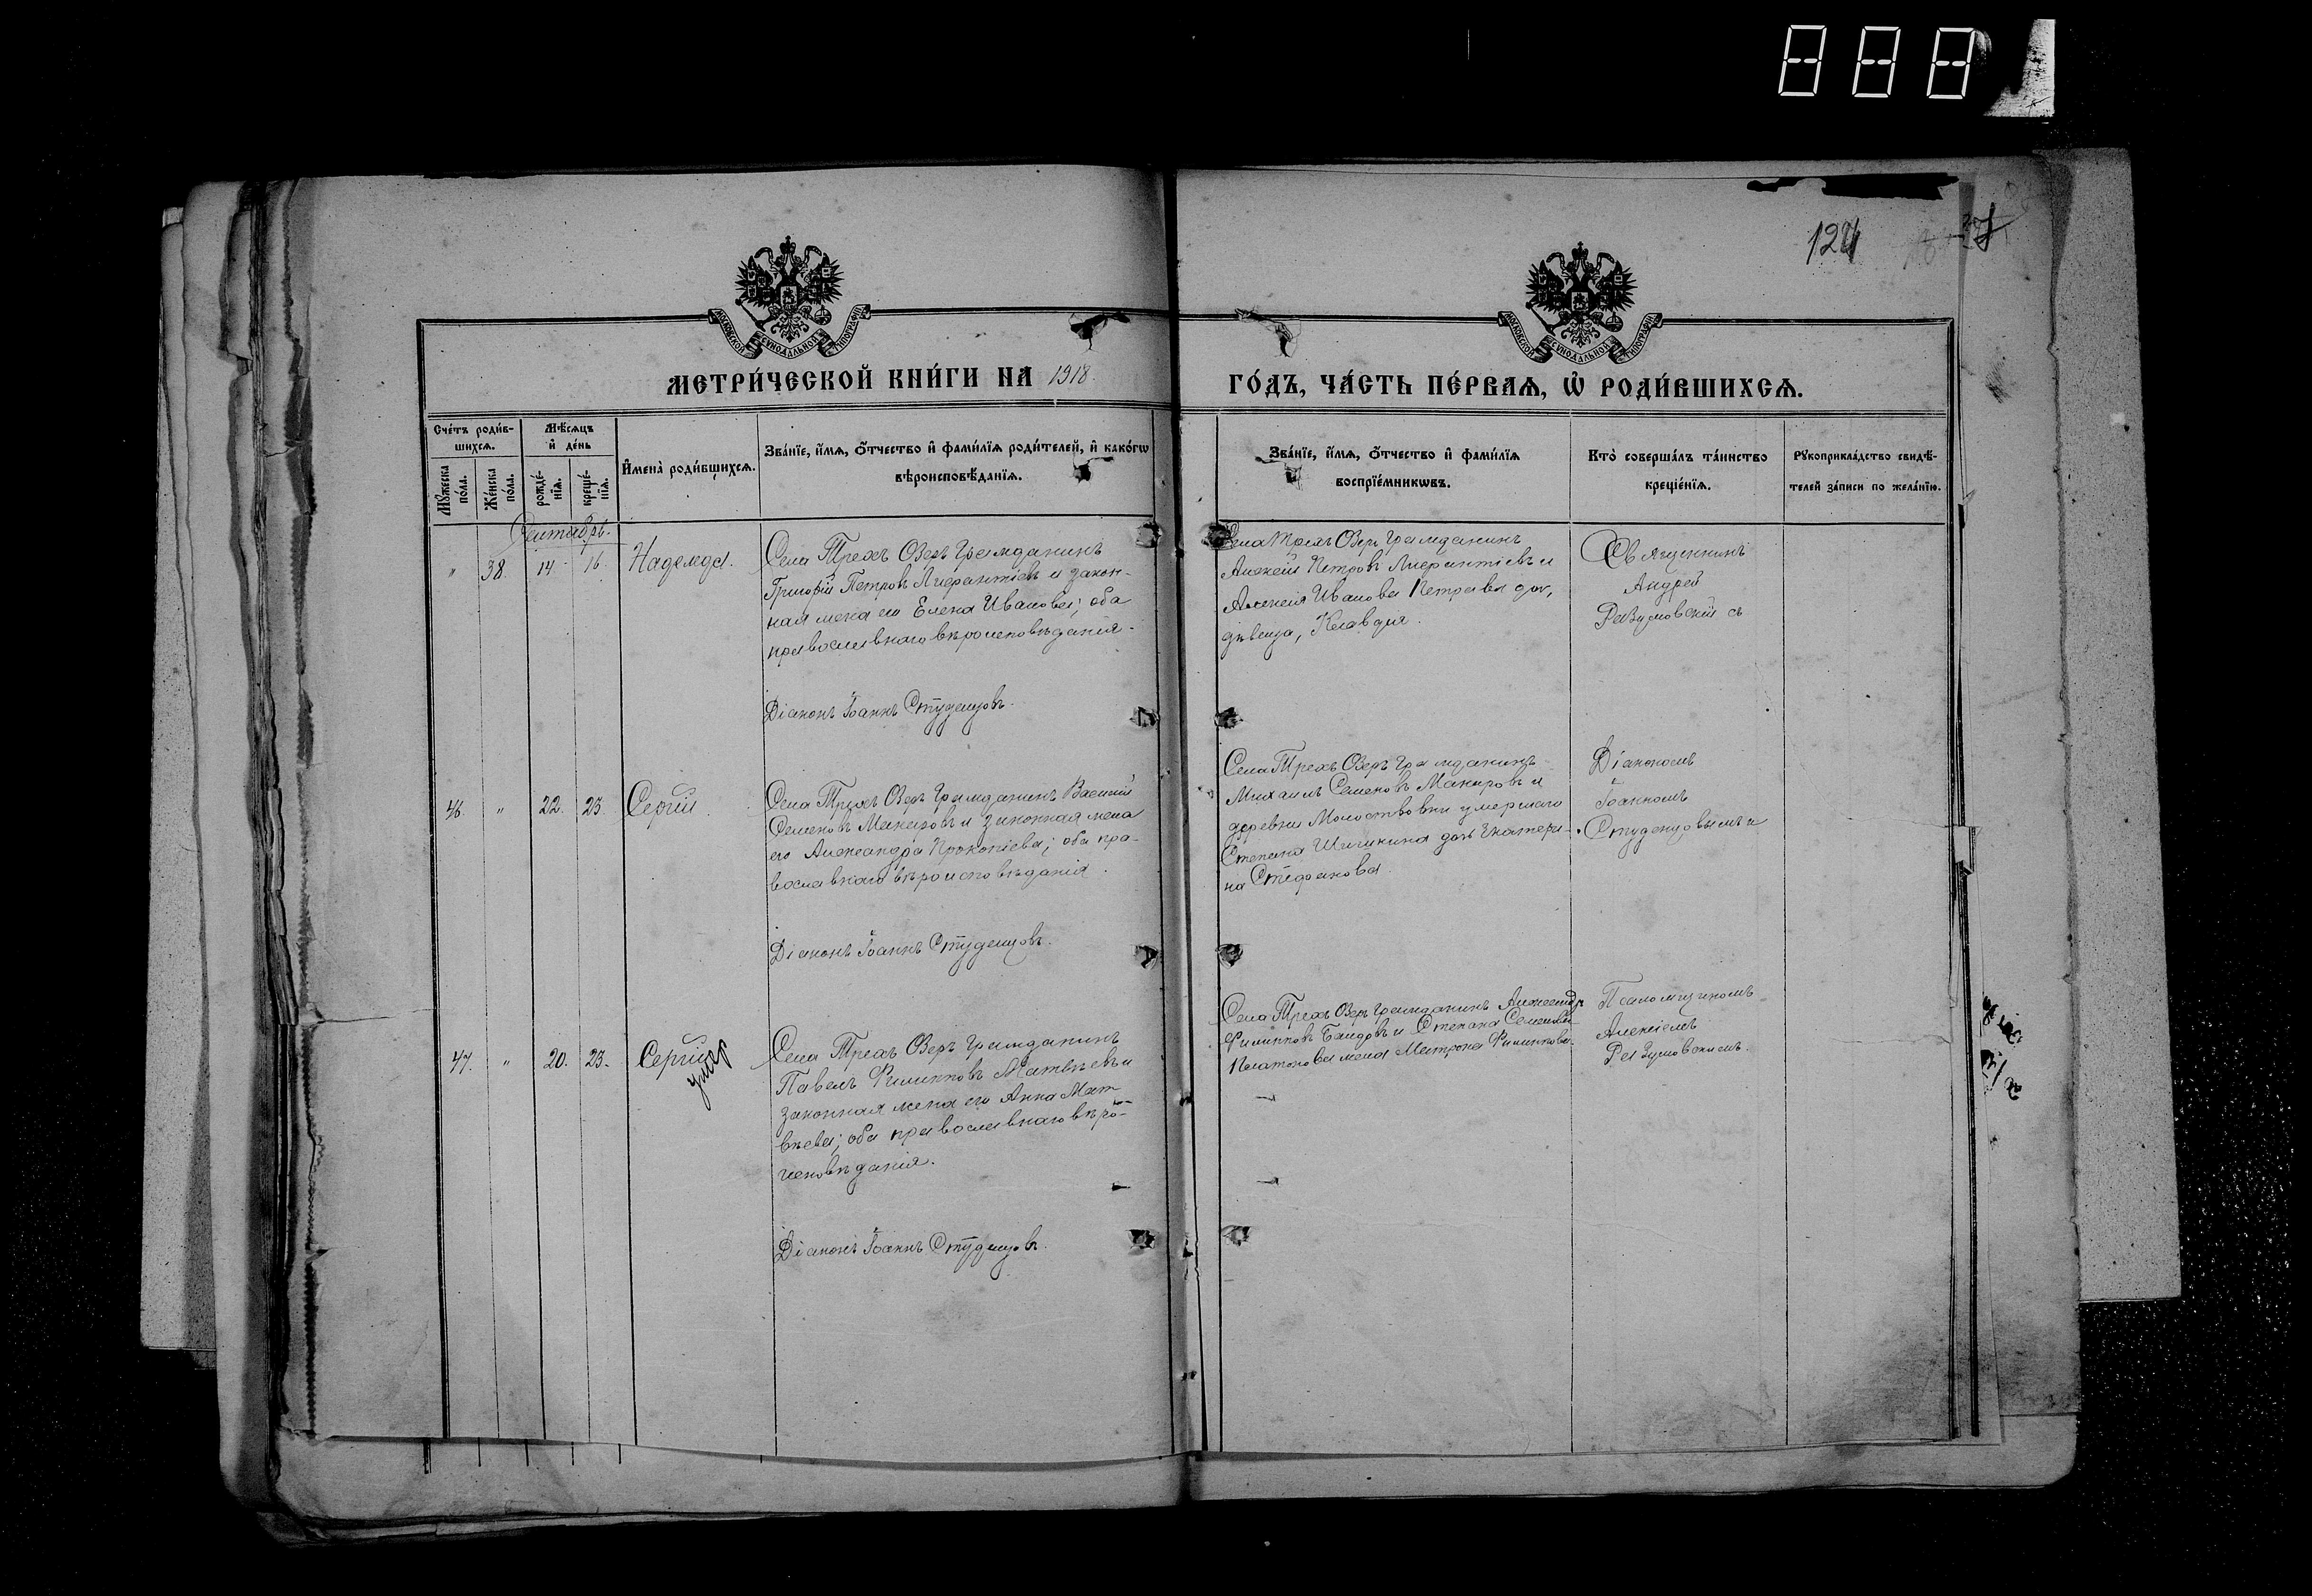 124
МОСКОВСКОЙ СѴНОДАЛЬНОЙ ТИПОГРАФІИ
МОСКОВСКОЙ СѴНОДАЛЬНОЙ ТИПОГРАФІИ
МЕТРИ́ЧЕСКОЙ КНИ́ГИ НА 1918.
ГО́ДЪ, ЧА́СТЬ ПЕ́РВАѦ, Ѡ҆ РОДИ́ВШИХСѦ.
Счетъ родив-
шихсѧ.
Мꙋжеска пола.
Женска пола.
Мѣсѧцъ
и҆ де́нь
рожде́-
нїѧ.
креще́-
нїѧ.
И҆мена̀ роди́вшихсѧ.
Зва́нїе, и҆́мѧ, ѻ҆́тчество и҆ фами́лїѧ роди́телей, и҆ како́гѡ
вѣроисповѣ́данїѧ.
Зва́нїе, и҆́мѧ, ѻ҆́тчество и҆ фами́лїѧ
воспрїе́мникѡвъ.
Кто̀ соверша́лъ та́инство
креще́нїѧ.
Рꙋкоприкла́дство свидѣ́-
телей за́писи по жела́нїю.
Сентябрь.
" 38. 14. 16. Надежда.
Села Трехъ Озеръ гражданинъ
Григорій Петровъ Лиферантіевъ и закон-
ная жена его Елена Иванова; оба
православнаго вѣроисповѣданія.
Діаконъ Іоаннъ Студенцовъ.
Села Трехъ Озеръ гражданинъ
Алексѣй Петровъ Лиферантіевъ и
Алексѣя Иванова Петрова доч,
дѣвица, Клавдія.
Священникъ
Андрей
Разумовскій съ
46. " 22. 23. Сергій.
Села Трехъ Озеръ гражданинъ Василій
Семеновъ Макаровъ и законная жена
его Александра Прокопіева; оба пра-
вославнаго вѣроисповѣданія.
Діаконъ Іоаннъ Студенцовъ.
Села Трехъ Озеръ гражданинъ
Михаилъ Семеновъ Макаровъ и
деревни Молостовки умершаго
Степана Шишкина дочь Екатери-
на Стефанова.
Діакономъ
Іоанномъ
Студенцовымъ и
47. " 20. 23. Сергій
умер
Села Трехъ Озеръ гражданинъ
Павелъ Филипповъ Матвѣевъ и
законная жена его Анна Мат-
вѣева; оба православнаго вѣро-
исповѣданія.
Діаконъ Іоаннъ Студенцовъ.
Села Трехъ Озеръ гражданинъ Александръ
Филипповъ и Степана Семенова
Платонова жена Матрона Филиппова.
Псаломщикомъ
Алексіемъ
Разумовскимъ.